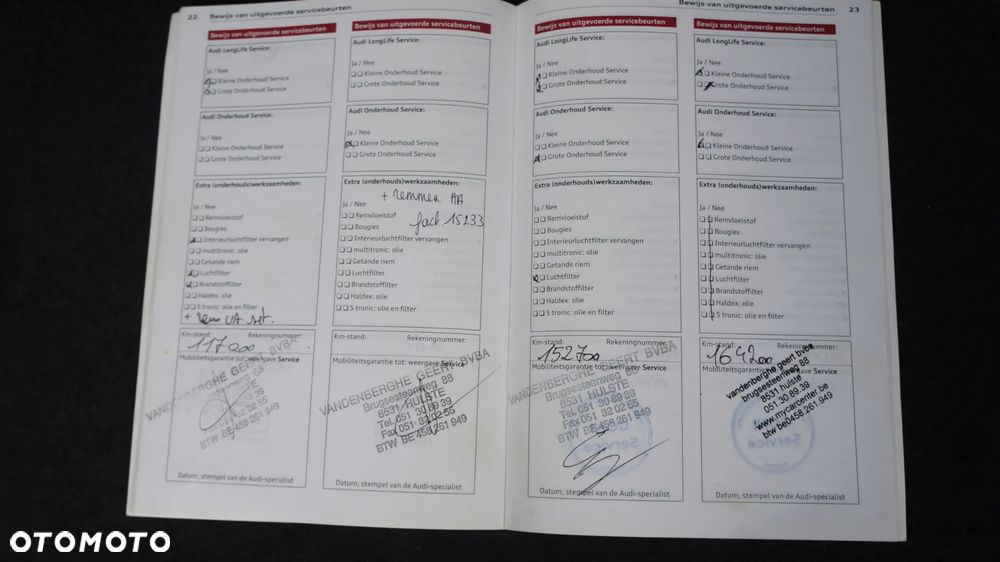 22 Bewijs van uitgevoerde servicebeurten
Bewijs van uitgevoerde servicebeurten
Audi LongLife Service:
Ja / Nee
Kleine Onderhoud Service
Grote Onderhoud Service
Audi Onderhoud Service:
Ja / Nee
Kleine Onderhoud Service
Grote Onderhoud Service
Extra (onderhouds)werkzaamheden:
Ja / Nee
Remvloeistof
Bougies
Interieurluchtfilter vervangen
multitronic: olie
Getande riem
Luchtfilter
Brandstoffilter
Haldex: olie
S tronic: olie en filter
+ rem VA set.
Km-stand: Rekeningnummer:
117000
Mobiliteitsgarantie tot: weergave Service
VANDENBERGHE GEERT BVBA
BTW BE 458 261 949
Datum, stempel van de Audi-specialist
Bewijs van uitgevoerde servicebeurten
Audi LongLife Service:
Ja / Nee
Kleine Onderhoud Service
Grote Onderhoud Service
Audi Onderhoud Service:
Ja / Nee
Kleine Onderhoud Service
Grote Onderhoud Service
Extra (onderhouds)werkzaamheden:
+ remmen AA
Ja / Nee
Remvloeistof
fact. 15233
Bougies
Interieurluchtfilter vervangen
multitronic: olie
Getande riem
Luchtfilter
Brandstoffilter
Haldex: olie
S tronic: olie en filter
Km-stand: Rekeningnummer:
Mobiliteitsgarantie tot: weergave Service
VANDENBERGHE GEERT BVBA
Brugsesteenweg 88
8531 HULSTE
Tel. 051 30 89 39
Fax 051 32 02 55
BTW BE 458 261 949
Datum, stempel van de Audi-specialist
Bewijs van uitgevoerde servicebeurten 23
Bewijs van uitgevoerde servicebeurten
Audi LongLife Service:
Ja / Nee
Kleine Onderhoud Service
Grote Onderhoud Service
Audi Onderhoud Service:
Ja / Nee
Kleine Onderhoud Service
Grote Onderhoud Service
Extra (onderhouds)werkzaamheden:
Ja / Nee
Remvloeistof
Bougies
Interieurluchtfilter vervangen
multitronic: olie
Getande riem
Luchtfilter
Brandstoffilter
Haldex: olie
S tronic: olie en filter
Km-stand: Rekeningnummer:
152700
Mobiliteitsgarantie tot: weergave Service
VANDENBERGHE GEERT BVBA
Brugsesteenweg 88
8531 HULSTE
Tel. 051 30 89 39
Fax 051 32 02 55
BTW BE 458 261 949
Service
Datum, stempel van de Audi-specialist
Bewijs van uitgevoerde servicebeurten
Audi LongLife Service:
Ja / Nee
Kleine Onderhoud Service
Grote Onderhoud Service
Audi Onderhoud Service:
Ja / Nee
Kleine Onderhoud Service
Grote Onderhoud Service
Extra (onderhouds)werkzaamheden:
Ja / Nee
Remvloeistof
Bougies
Interieurluchtfilter vervangen
multitronic: olie
Getande riem
Luchtfilter
Brandstoffilter
Haldex: olie
S tronic: olie en filter
Km-stand: Rekeningnummer:
164200
Mobiliteitsgarantie tot: weergave Service
vandenberghe geert bvba
brugsesteenweg 88
8531 hulste
051.30.89.39
www.mycarcenter.be
btw be0458 261 949
Service
Datum, stempel van de Audi-specialist
OTOMOTO